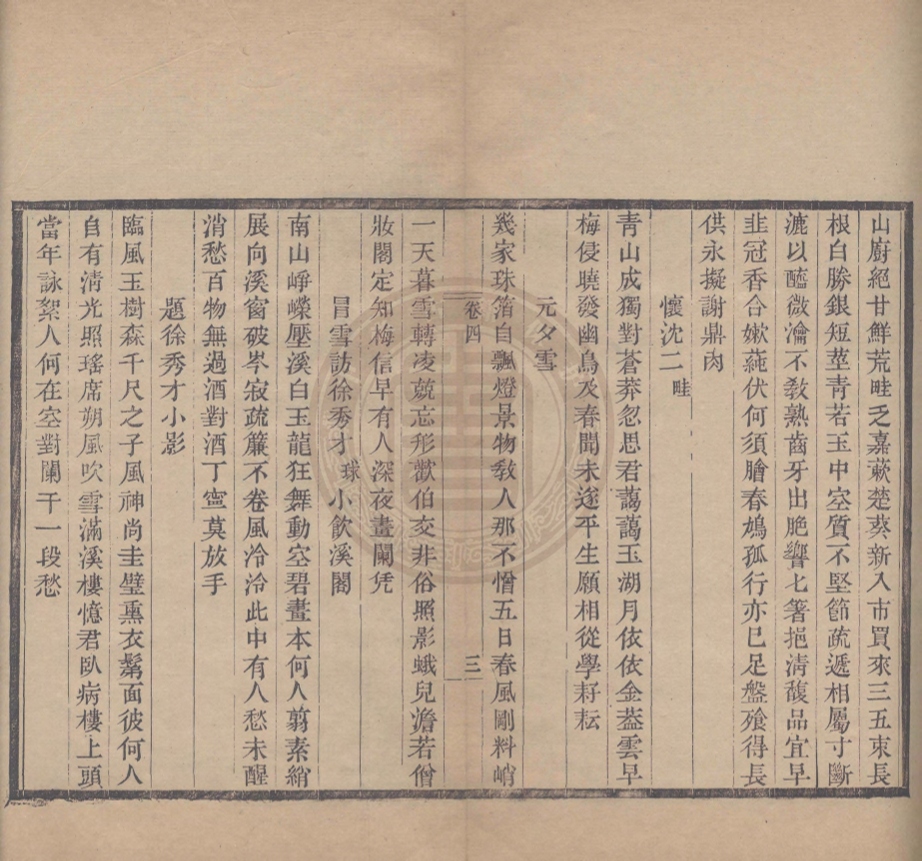 山廚絕甘鮮荒畦乏嘉蔌楚葵新入市買來三五束長
根白勝銀短莖青若玉中空質不堅節疏遞相屬寸斷
漉以醯微瀹不敎熟齒牙出脆響七箸挹淸馥品宜早
韭冠香合嫰蒓伏何須膾春鳩孤行亦已足盤飱得長
供永擬謝鼎肉
懷沈二畦
靑山成獨對蒼莽忽思君藹藹玉湖月依依金葢雲早
梅侵曉發幽鳥及春聞未遂平生願相從學耔耘
元夕雪
幾家珠箔自飄燈景物敎人那不憎五日春風剛料峭
卷四
三
一天暮雪轉凌兢忘形歡伯交非俗照影蛾兒澹若僧
妝閣定知梅信早有人深夜畫闌凭
冒雪訪徐秀才球小飮溪閣
南山崢嶸壓溪白玉龍狂舞動空碧畫本何人翦素綃
展向溪窗破岑寂疏簾不卷風冷泠此中有人愁未醒
消愁百物無過酒對酒丁寧莫放手
題徐秀才小影
臨風玉樹森千尺之子風神尚圭璧熏衣鬋面彼何人
自有淸光照瑤席朔風吹雪滿溪樓憶君臥病樓上頭
當年詠絮人何在空對闌干一段愁